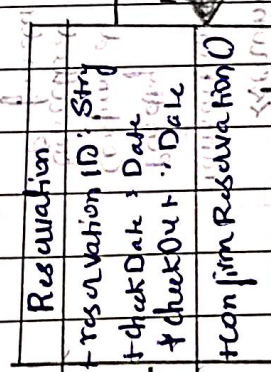 Reservation
+reservation ID: Strg
+checkDate : Date
+checkOut : Date
+confirmReservation()